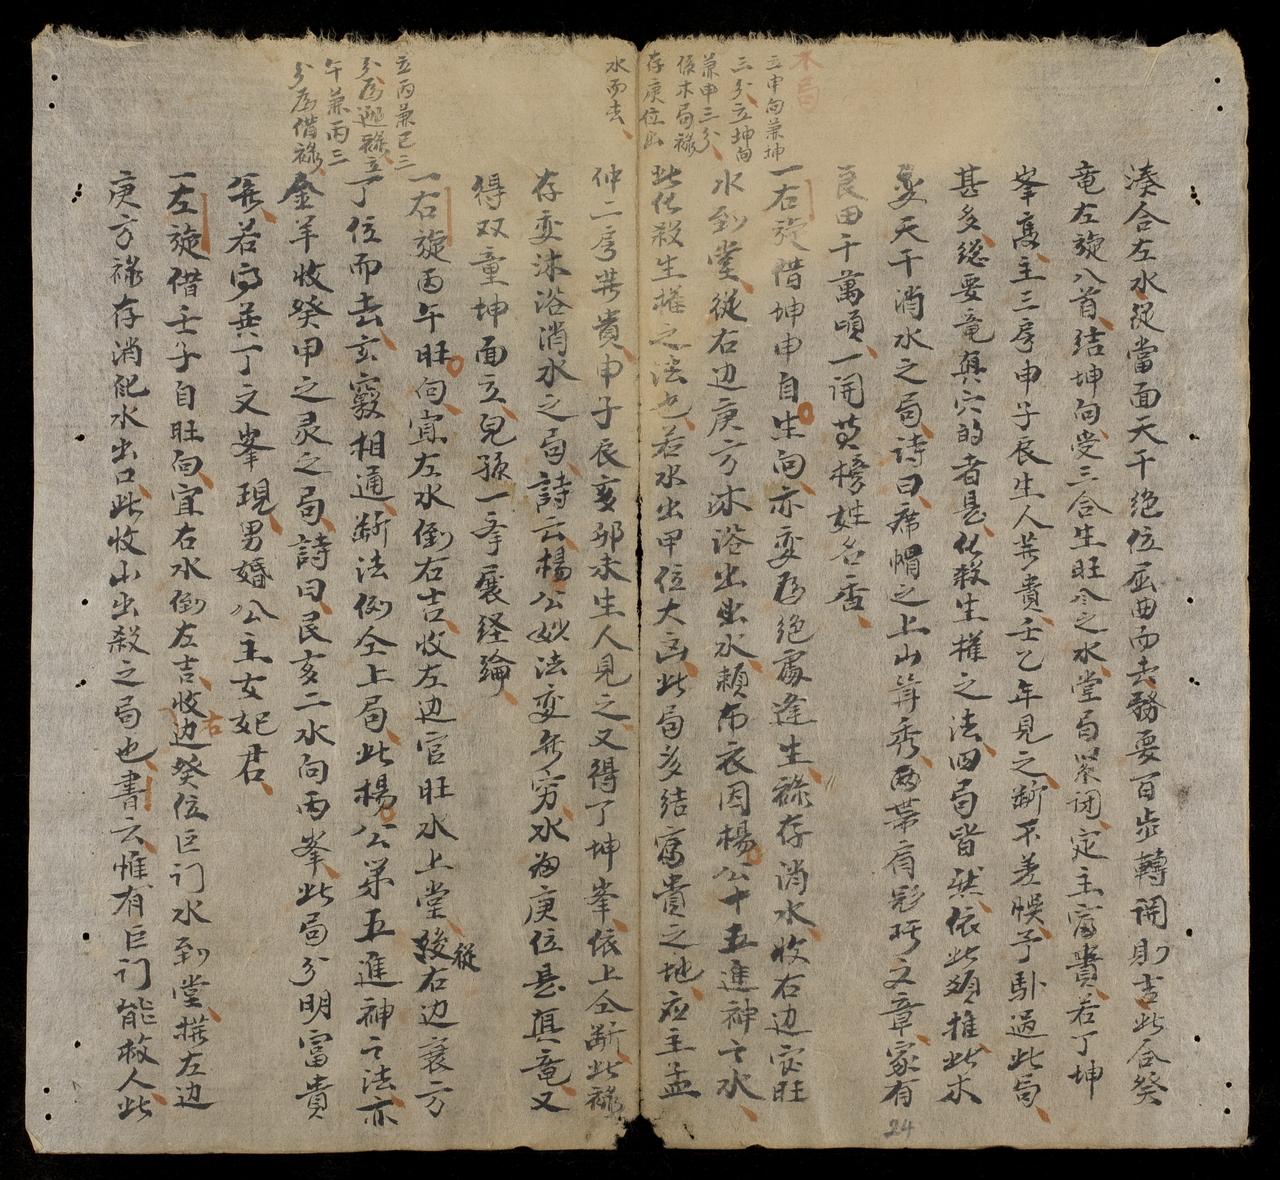 木局
立申向兼坤
三分立坤向
兼申三分
俱木局祿
存庚位出
水而去
湊合左水從當面天干絕位屈曲而去務要百步轉関則吉此合癸
竜左旋八首結坤向受三合生旺令之水堂局緊閉定主富貴若丁坤
峯高主三房申子辰生人英貴壬乙年見之断不差悞予馱過此局
甚多総要竜真穴的者是化殺生權之法四局皆然依此類推此木
변天干消水之局詩曰席帽之上山聳秀兩帶肩彩巧文章家有
良田千萬頃一開黄榜姓名香
一右旋借坤申自生向亦変為絕處逢生祿存消水收右边官旺
水到堂從右边庚方沐浴出出水頼布衣因楊公十五進神之水
此化殺生權之法也若水出甲位大凶此局多結富貴之地应主孟
仲二房英貴申子辰亥卯未生人見之又得丁坤峯依上仝断此祿
存变沐浴消水之局詩云楊公妙法変無穷水為庚位是真竜又
得双童坤面立兒孫一挙展経綸
立丙兼巳三
分為廵祿立
午兼丙三
分為借祿
一右旋丙午旺向宜左水倒右吉收左边官旺水上堂從右边衰方
丁位而去玄竅相通断法例仝上局此楊公第五進神之法亦
金羊收癸甲之灵之局詩曰艮亥二水向丙峯此局分明富貴
英若向巽丁文峯現男婚公主女妃君
一左旋借壬子自旺向宜右水倒左吉收右边癸位巨门水到堂撲左边
庚方祿存消化水出口此收山出殺之局也書云惟有巨门能救人此
24